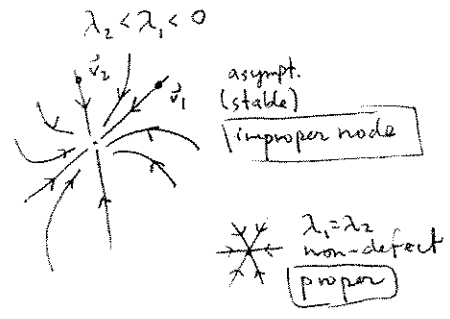 λ₂ < λ₁ < 0
v⃗₂
v⃗₁
asympt.
(stable)
improper node
λ₁ = λ₂
non-defect
proper